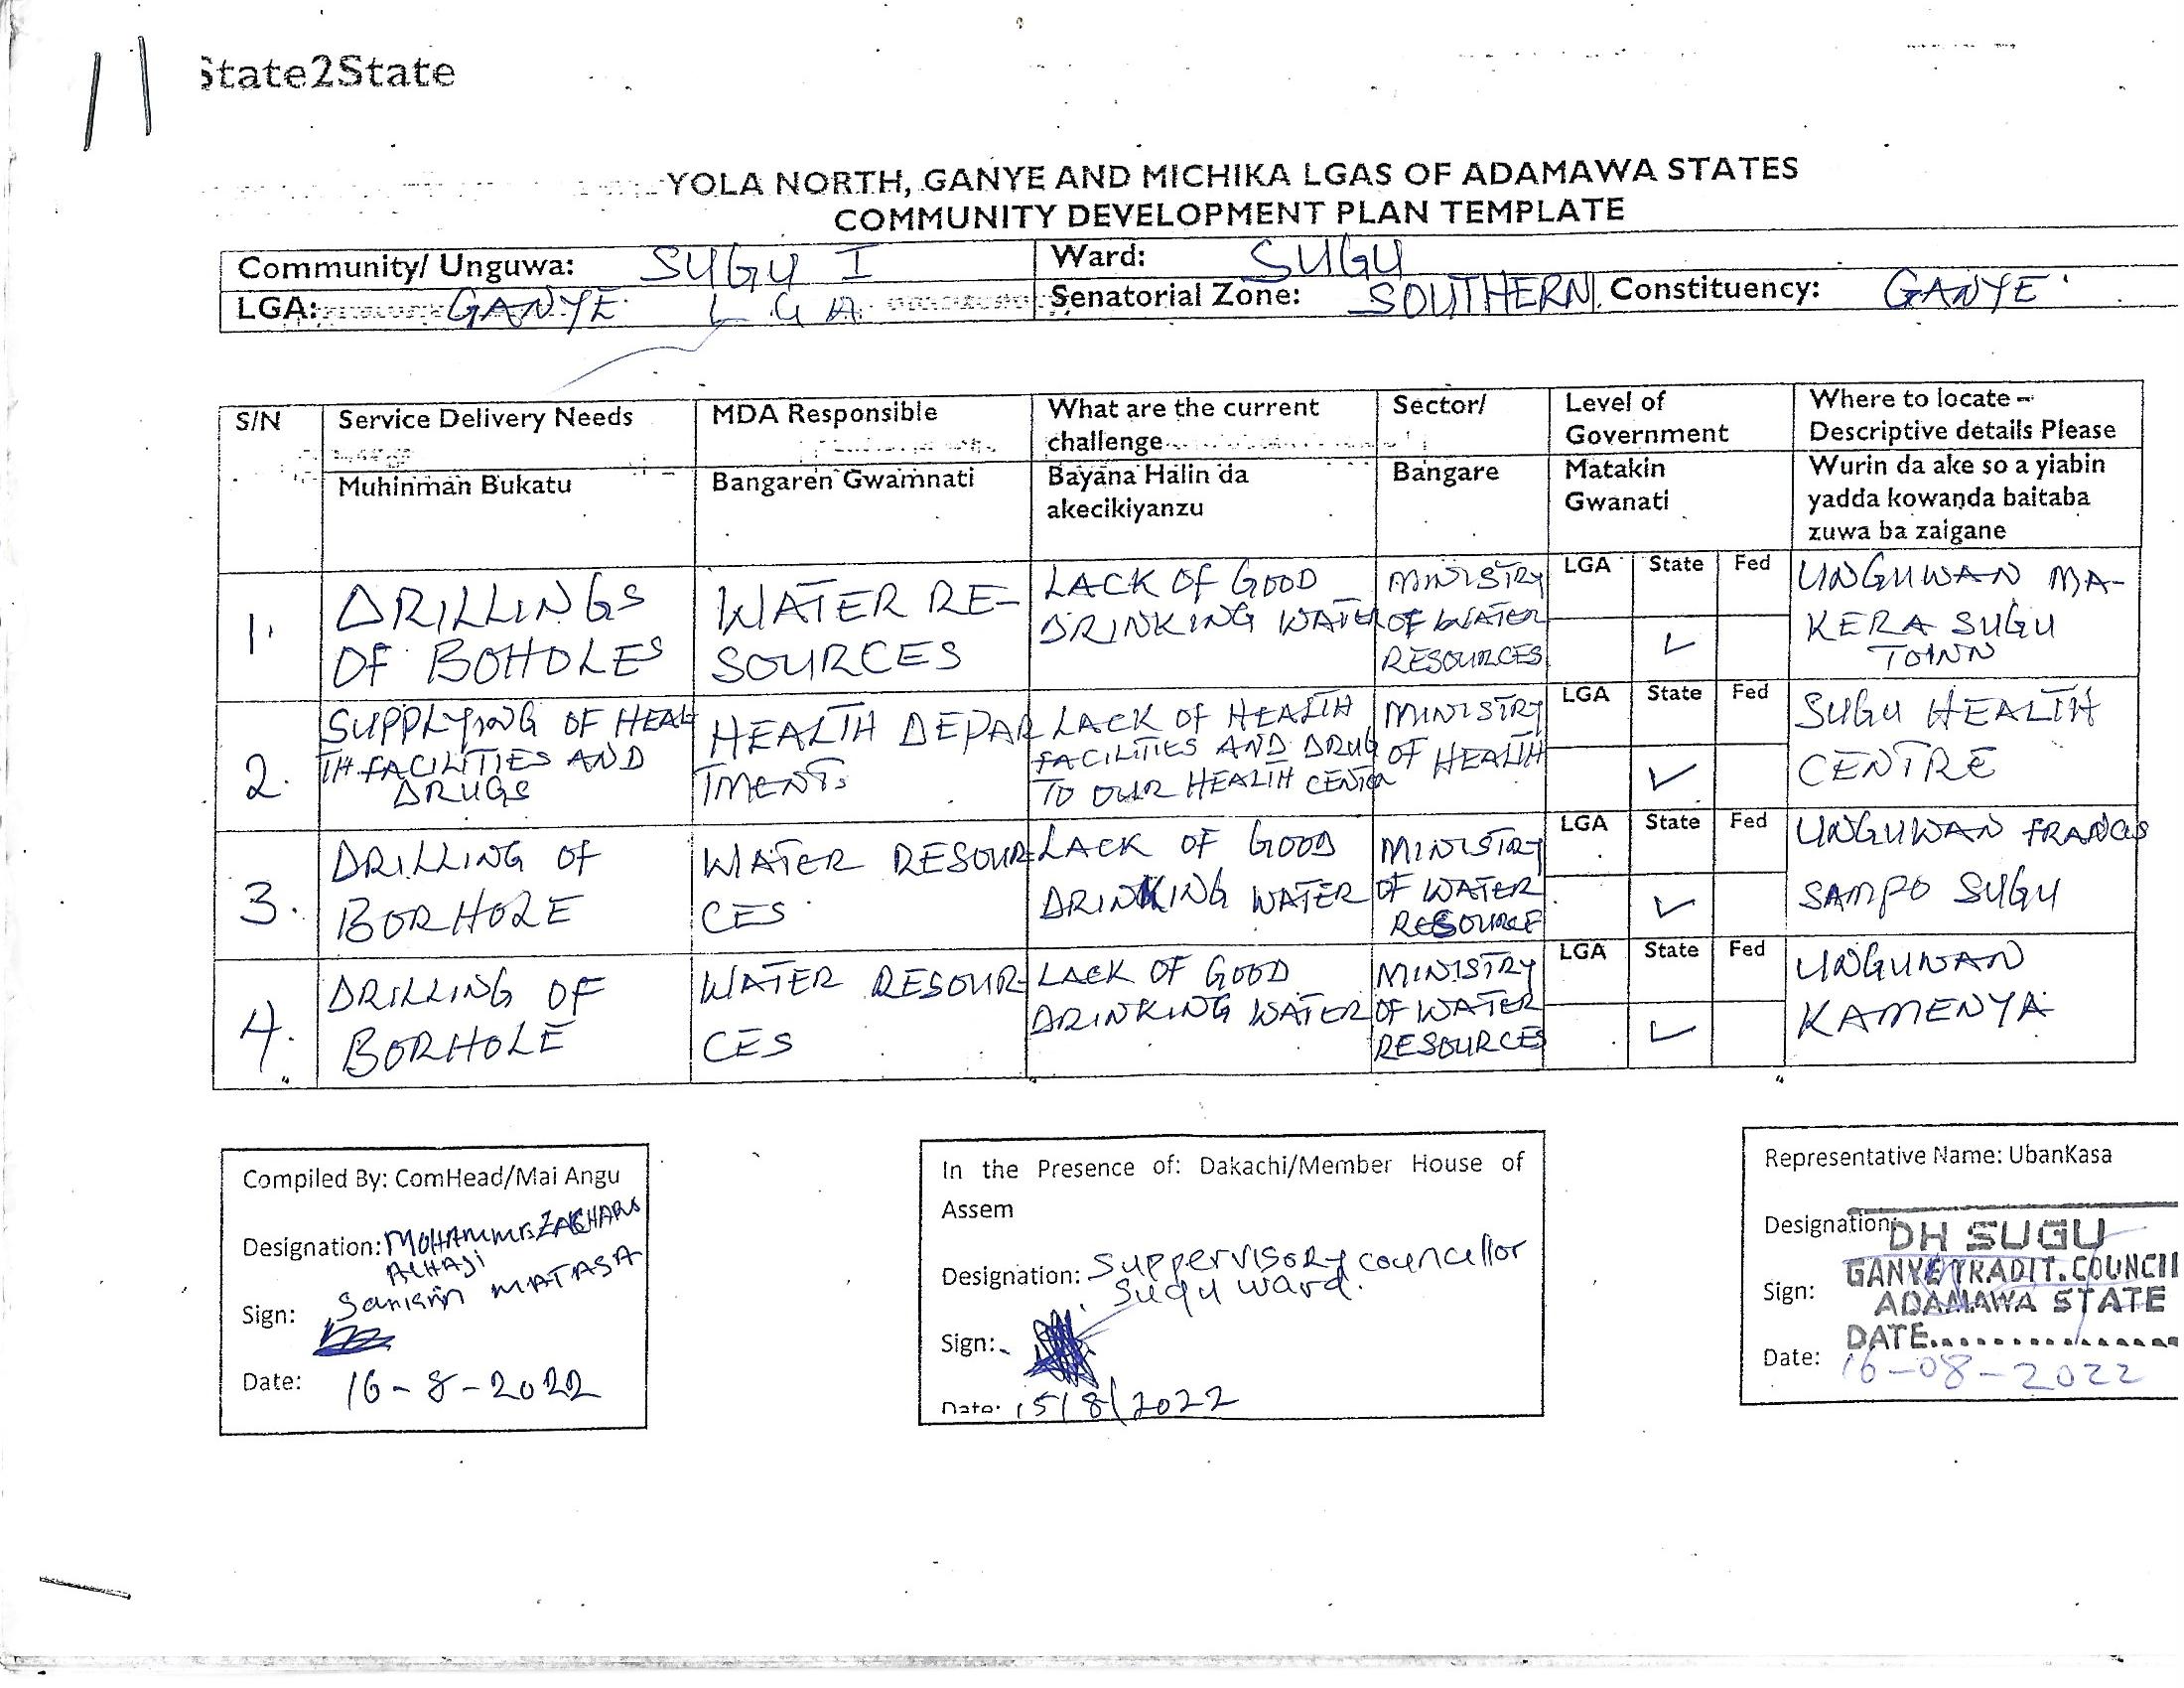 State2State
YOLA NORTH, GANYE AND MICHIKA LGAS OF ADAMAWA STATES
COMMUNITY DEVELOPMENT PLAN TEMPLATE
Community/ Unguwa: SUGU I Ward: SUGU
LGA: GANYE L G A Senatorial Zone: SOUTHERN Constituency: GANYE
S/N Service Delivery Needs MDA Responsible What are the current challenge Sector/ Level of Government Where to locate – Descriptive details Please
Muhinman Bukatu Bangaren Gwamnati Bayana Halin da akecikiyanzu Bangare Matakin Gwanati Wurin da ake so a yiabin yadda kowanda baitaba zuwa ba zaigane
LGA State Fed
1. DRILLINGS OF BOHOLES WATER RE-SOURCES LACK OF GOOD DRINKING WATER MINISTRY OF WATER RESOURCES ✓ UNGUWAN MA-KERA SUGU TOWN
LGA State Fed
2. SUPPLYING OF HEAL TH FACILITIES AND DRUGS HEALTH DEPAR TMENTS LACK OF HEALTH FACILITIES AND DRUG TO OUR HEALTH CENTER MINISTRY OF HEALTH ✓ SUGU HEALTH CENTRE
LGA State Fed
3. DRILLING OF BORHOLE WATER RESOUR CES LACK OF GOOD DRINKING WATER MINISTRY OF WATER RESOURCE ✓ UNGUWAN FRANCIS SAMPO SUGU
LGA State Fed
4. DRILLING OF BORHOLE WATER RESOUR CES LACK OF GOOD DRINKING WATER MINISTRY OF WATER RESOURCES ✓ UNGUWAN KAMENYA
Compiled By: ComHead/Mai Angu
Designation:
ALHAJI
MATASA
Sign:
Date: 16-8-2022
In the Presence of: Dakachi/Member House of
Assem
Designation: Suppervisory councellor
Sugu ward.
Sign:
Date: 15/8/2022
Representative Name: UbanKasa
Designation: DH SUGU
GANYE TRADIT. COUNCIL
Sign: ADAMAWA STATE
DATE..............
Date: 16-08-2022